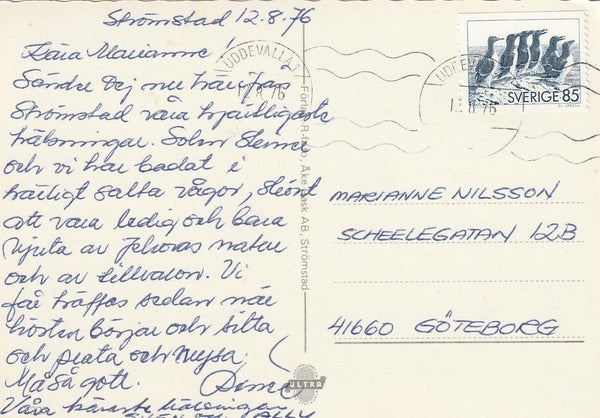 Strömstad 12.8.76
Kära Marianne!
Sänder Dej nu härifrån
Strömstad våra hjärtligaste
hälsningar. Solen skiner
och vi har badat i
härligt salta vågor, skönt
att vara ledig och bara
njuta av Jehovas natur
och av tillvaron. Vi
får träffas sedan när
hösten börjar och sitta
och prata och mysa.
Må så gott.
Våra käraste hälsningar
ALLY
UDDEVALLA 1
12.8.76
UDDEVALLA
12.8.76
SVERIGE 85
MARIANNE NILSSON
SCHEELEGATAN 12B
41660 GÖTEBORG
Åke Rask AB, Strömstad
ULTRA